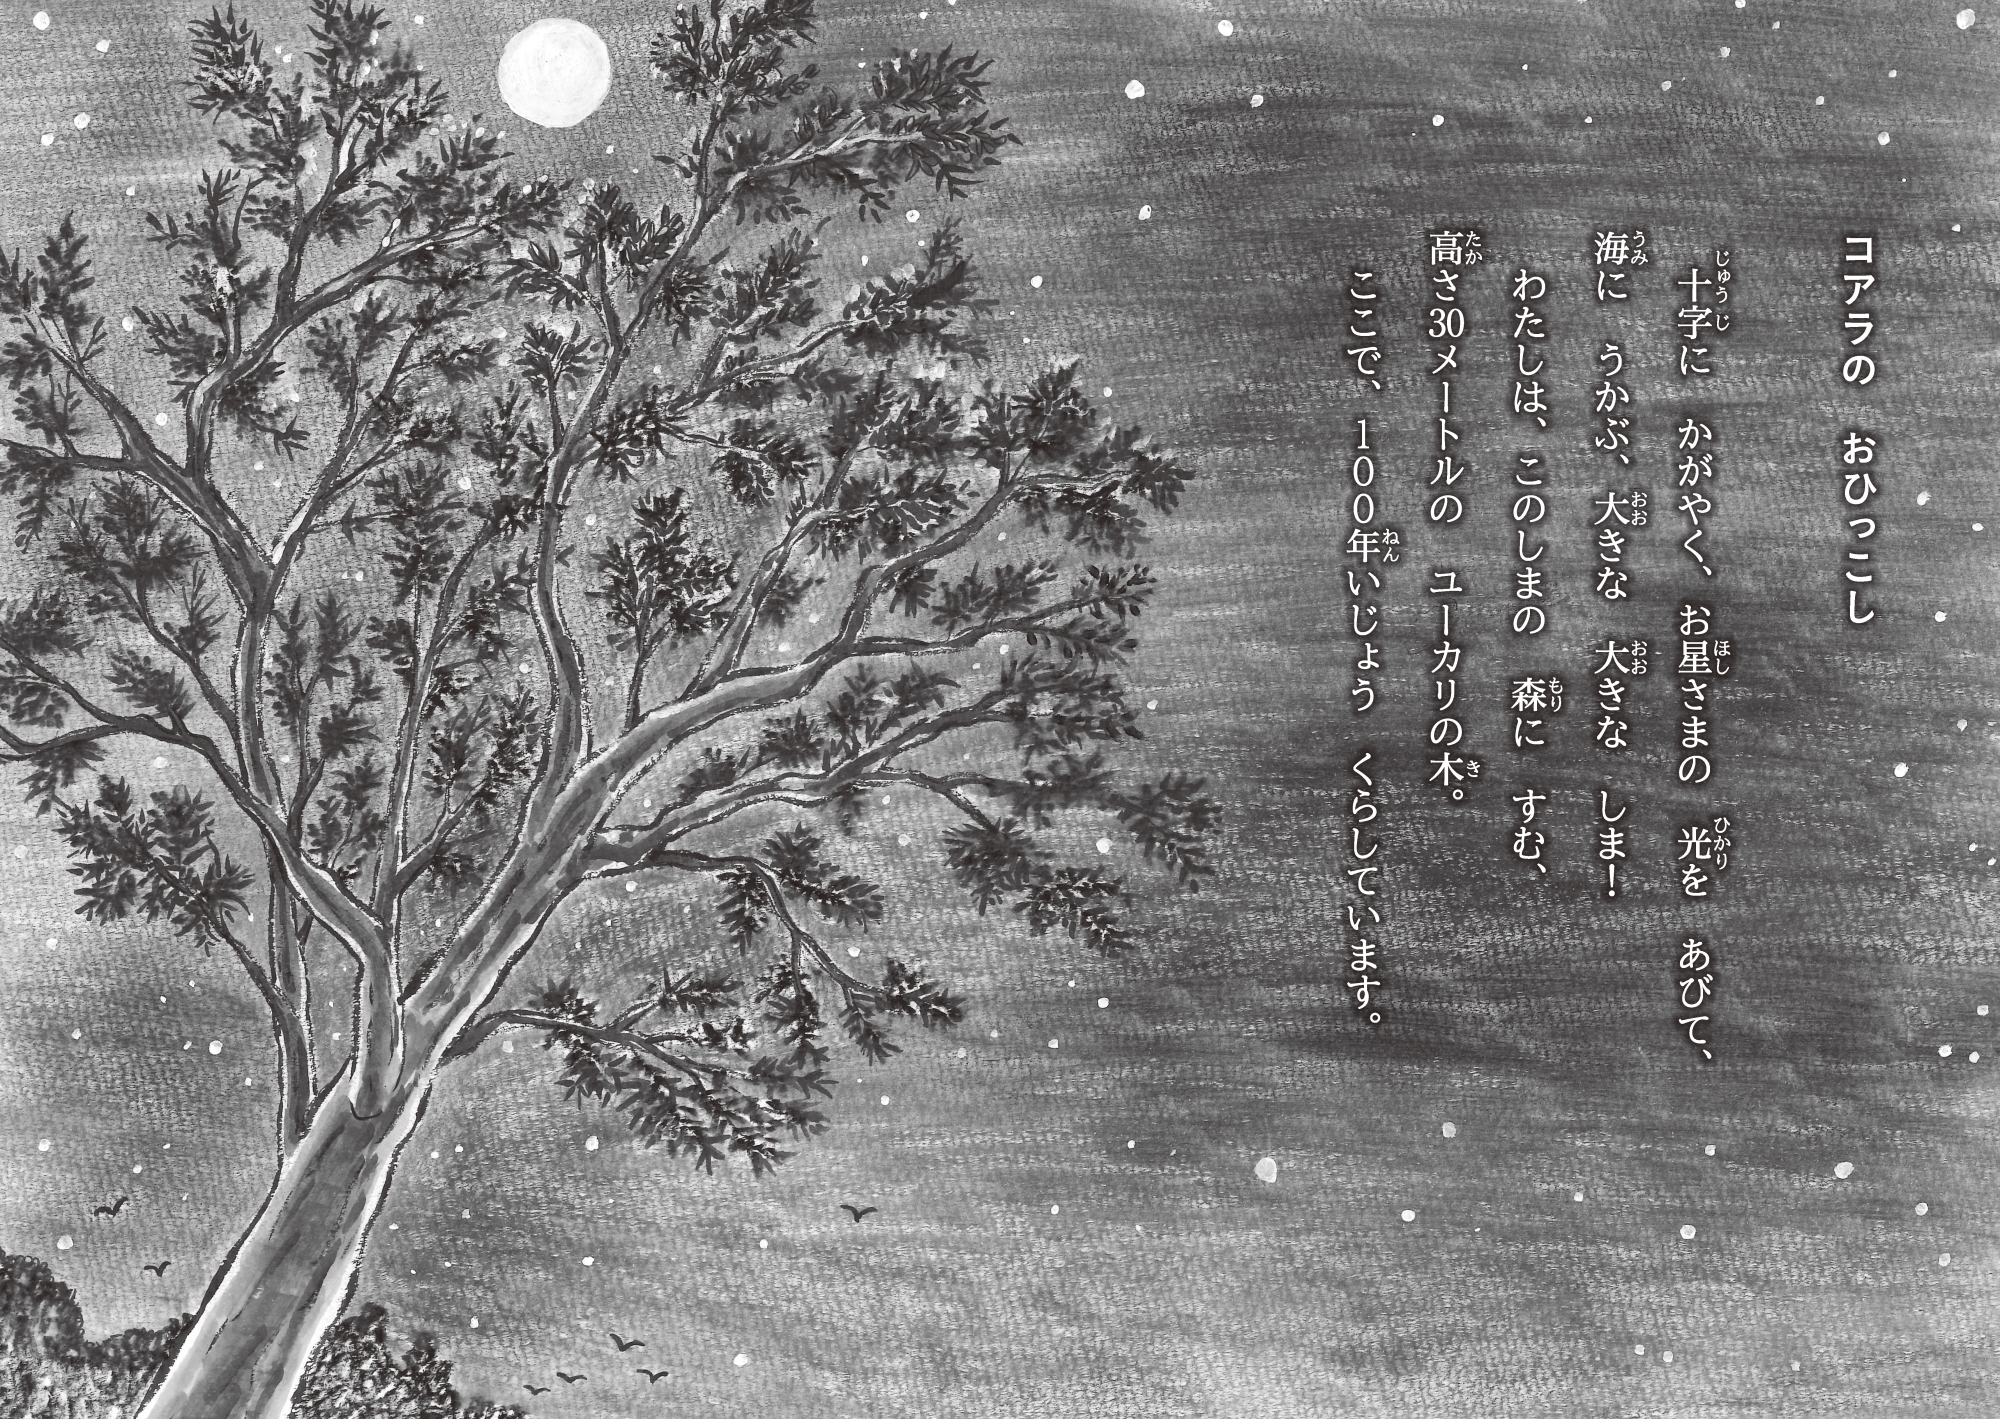 コアラの　おひっこし
十字に　かがやく、お星さまの　光を　あびて、
海に　うかぶ、大きな　大きな　しま！
わたしは、このしまの　森に　すむ、
高さ30メートルの　ユーカリの木。
ここで、１００年いじょう　くらしています。